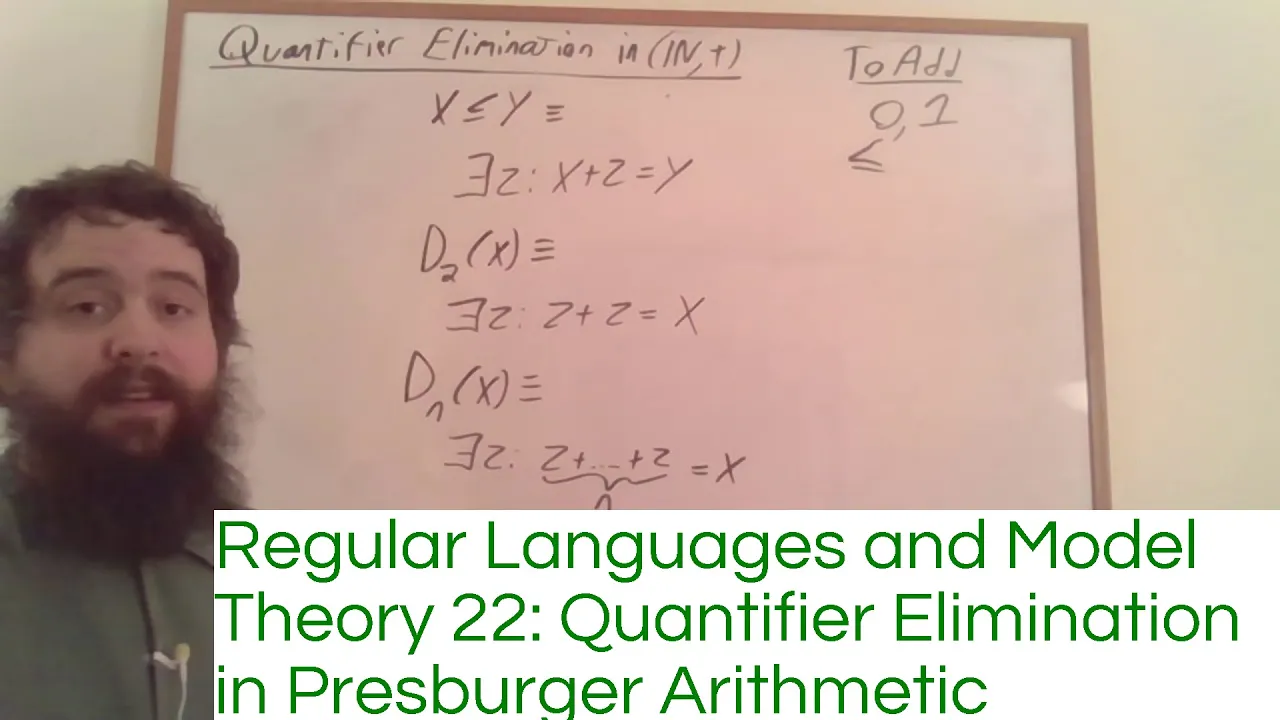 Quantifier Elimination in (ℕ,+)
To Add
0,1
≤
X ≤ Y ≡
∃z: X+z=Y
D₂(x) ≡
∃z: z+z = X
Dₙ(x) ≡
∃z: z+...+z = X
n
Regular Languages and Model
Theory 22: Quantifier Elimination
in Presburger Arithmetic